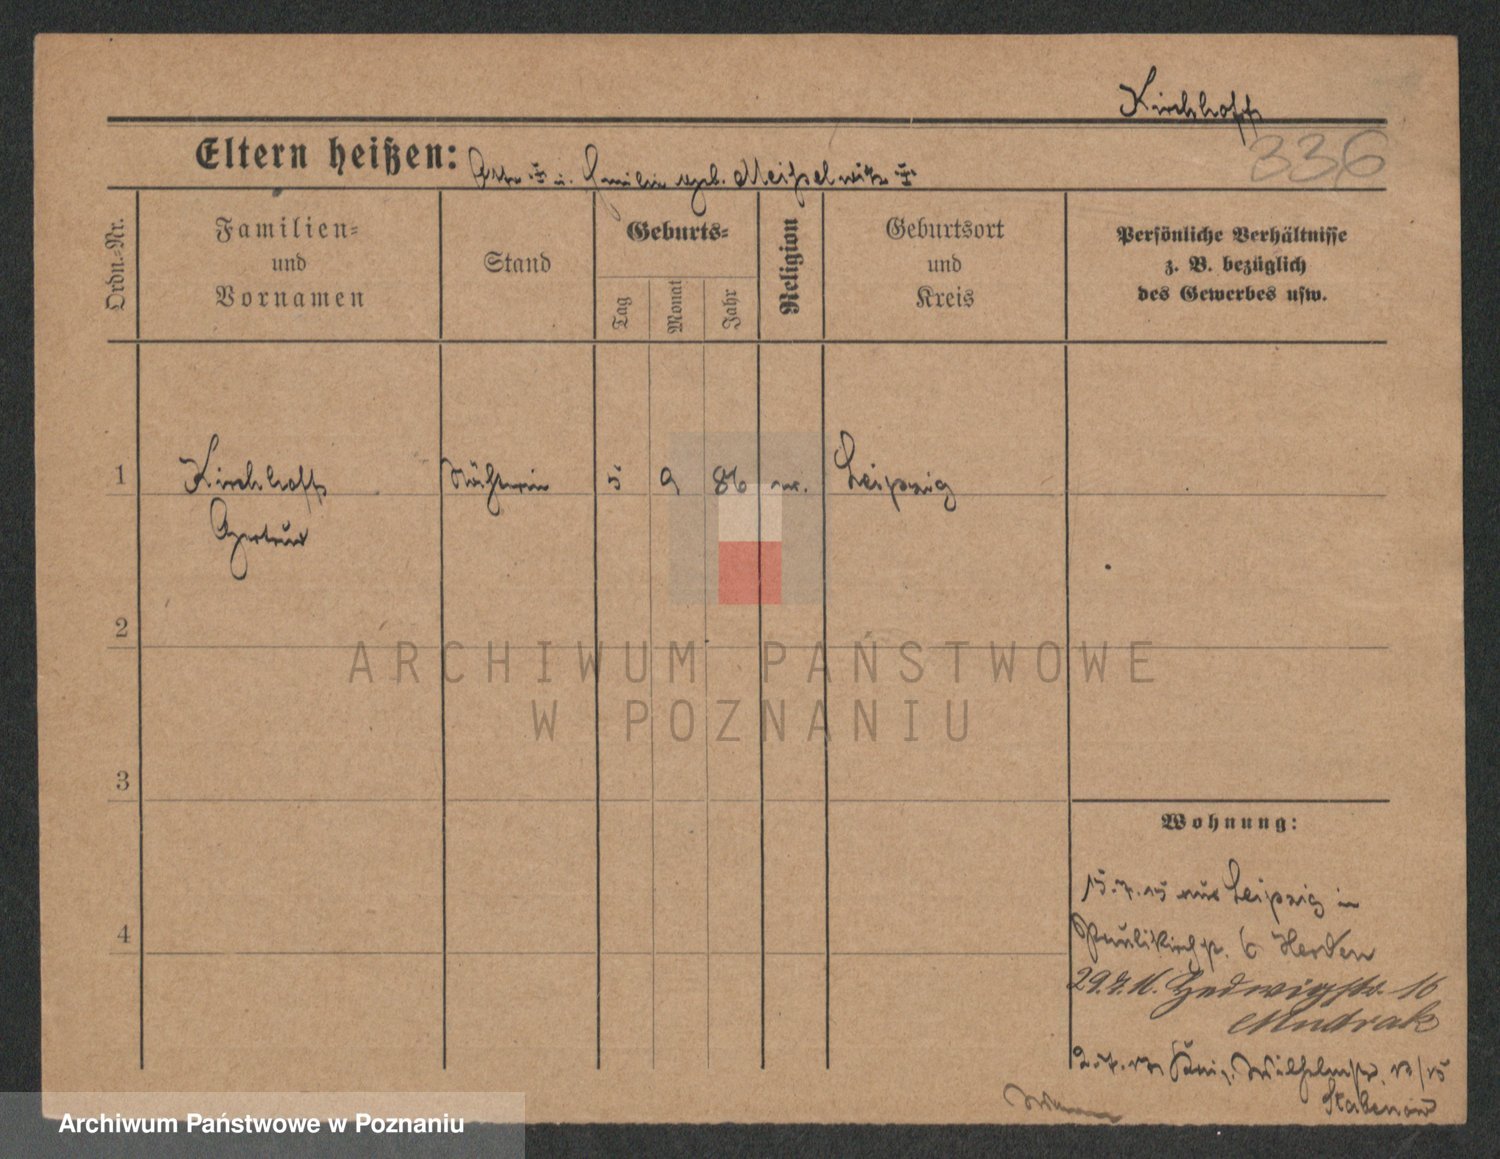 Kirchhoff
336
Eltern heißen: Otto ‡ u. Emilie geb. Meißelwitz ‡
Ordn.-Nr.
Familien-
und
Vornamen
Stand
Geburts-
Tag
Monat
Jahr
Religion
Geburtsort
und
Kreis
Persönliche Verhältnisse
z. B. bezüglich
des Gewerbes usw.
1
Kirchhoff
Gertrud
5 9 86
Leipzig
2
3
4
ARCHIWUM PAŃSTWOWE
W POZNANIU
Wohnung:
15.7.15 aus Leipzig in
Paulikirchstr. 6 Herden
29.7.16. Hedwigstr. 16
Mudrak
Wilhelmstr.
Archiwum Państwowe w Poznaniu